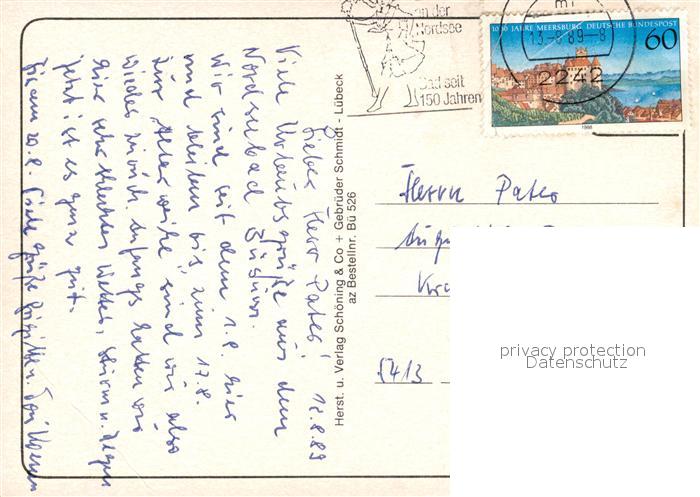 Lieber Herr Pater! 12.8.89
Viele Urlaubsgrüße aus dem
Nordseebad Büsum.
Wir sind seit dem 1.8. hier
und bleiben bis zum 17.8.
Zur "Alterweihe" sind wir also
wieder zurück. Anfangs hatten wir
hier sehr schlechtes Wetter, Sturm u. Regen
jetzt ist es ganz gut.
Viele Grüße
Herst. u. Verlag Schöning & Co + Gebrüder Schmidt - Lübeck
az Bestellnr. Bü 526
an der
Nordsee
Bad seit
150 Jahren
1000 JAHRE MEERSBURG DEUTSCHE BUNDESPOST
60
1988
13.-8.89-8
2242
Herrn Pater
5413
privacy protection
Datenschutz